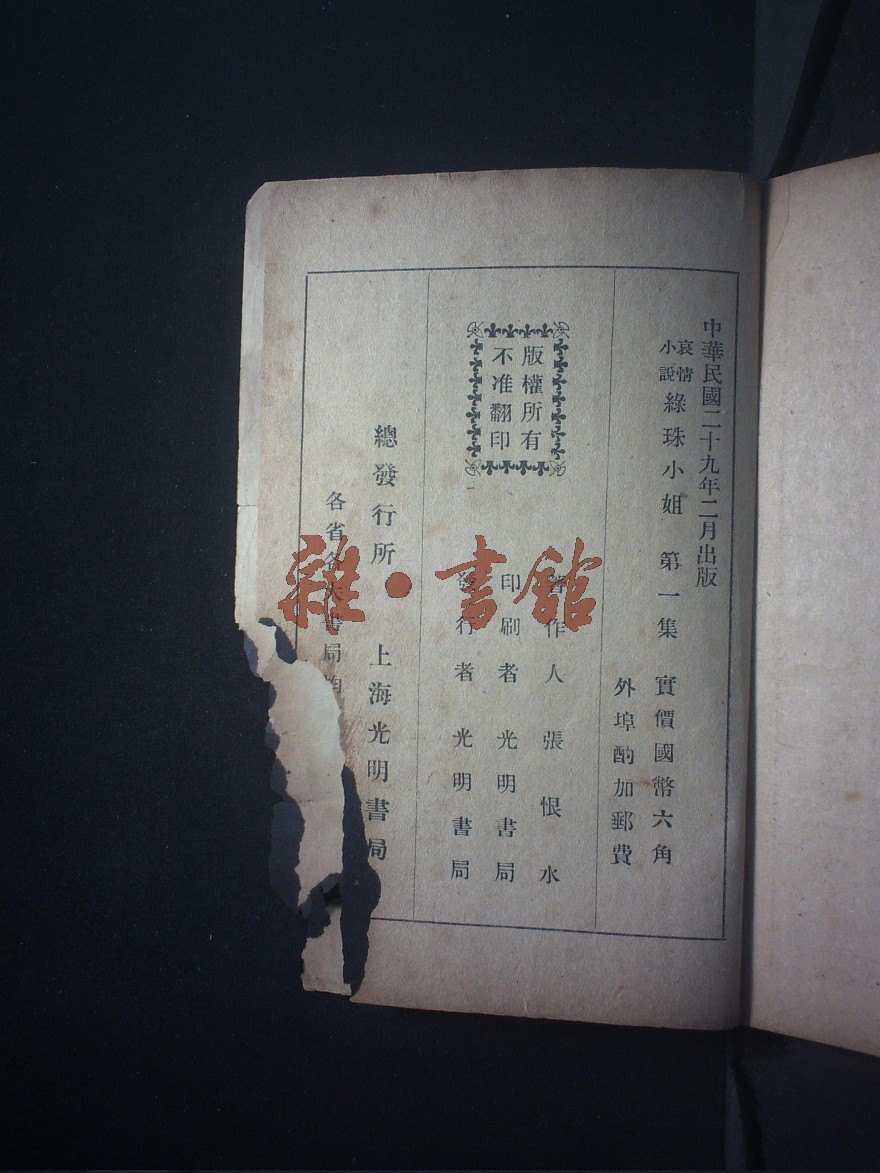 中華民國二十九年二月出版
哀情
小說
綠珠小姐 第一集 實價國幣六角
外埠酌加郵費
版權所有
不准翻印
著作人 張恨水
印刷者 光明書局
發行者 光明書局
總發行所 上海光明書局
各省各大書局均
雜·書館